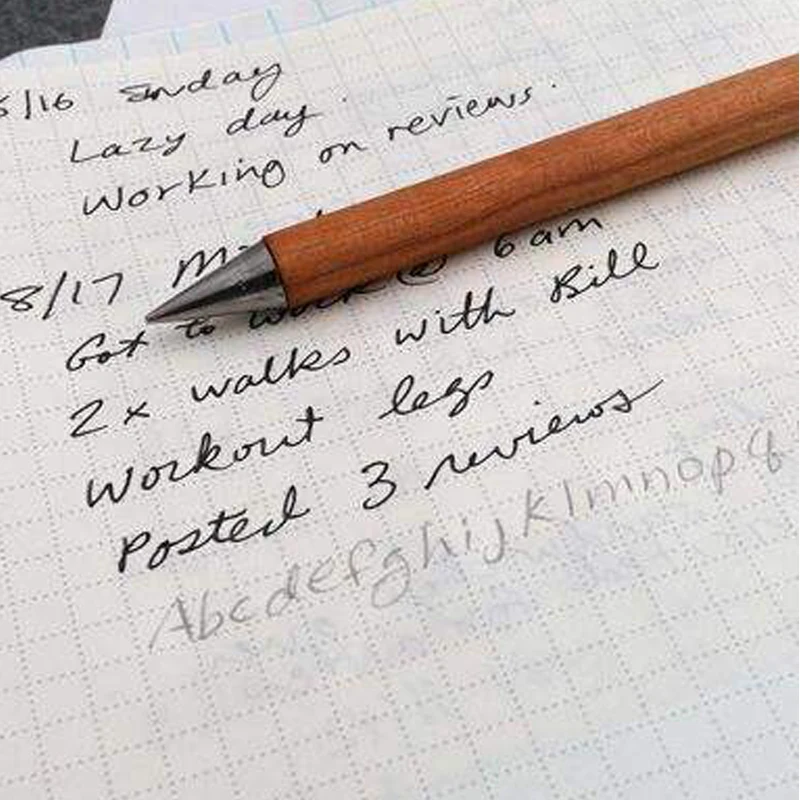 /16 Sunday
Lazy day.
Working on reviews.
8/17
Got to work @ 6am
2x walks with Bill
Workout legs
Posted 3 reviews
Abcdefghijklmnopq